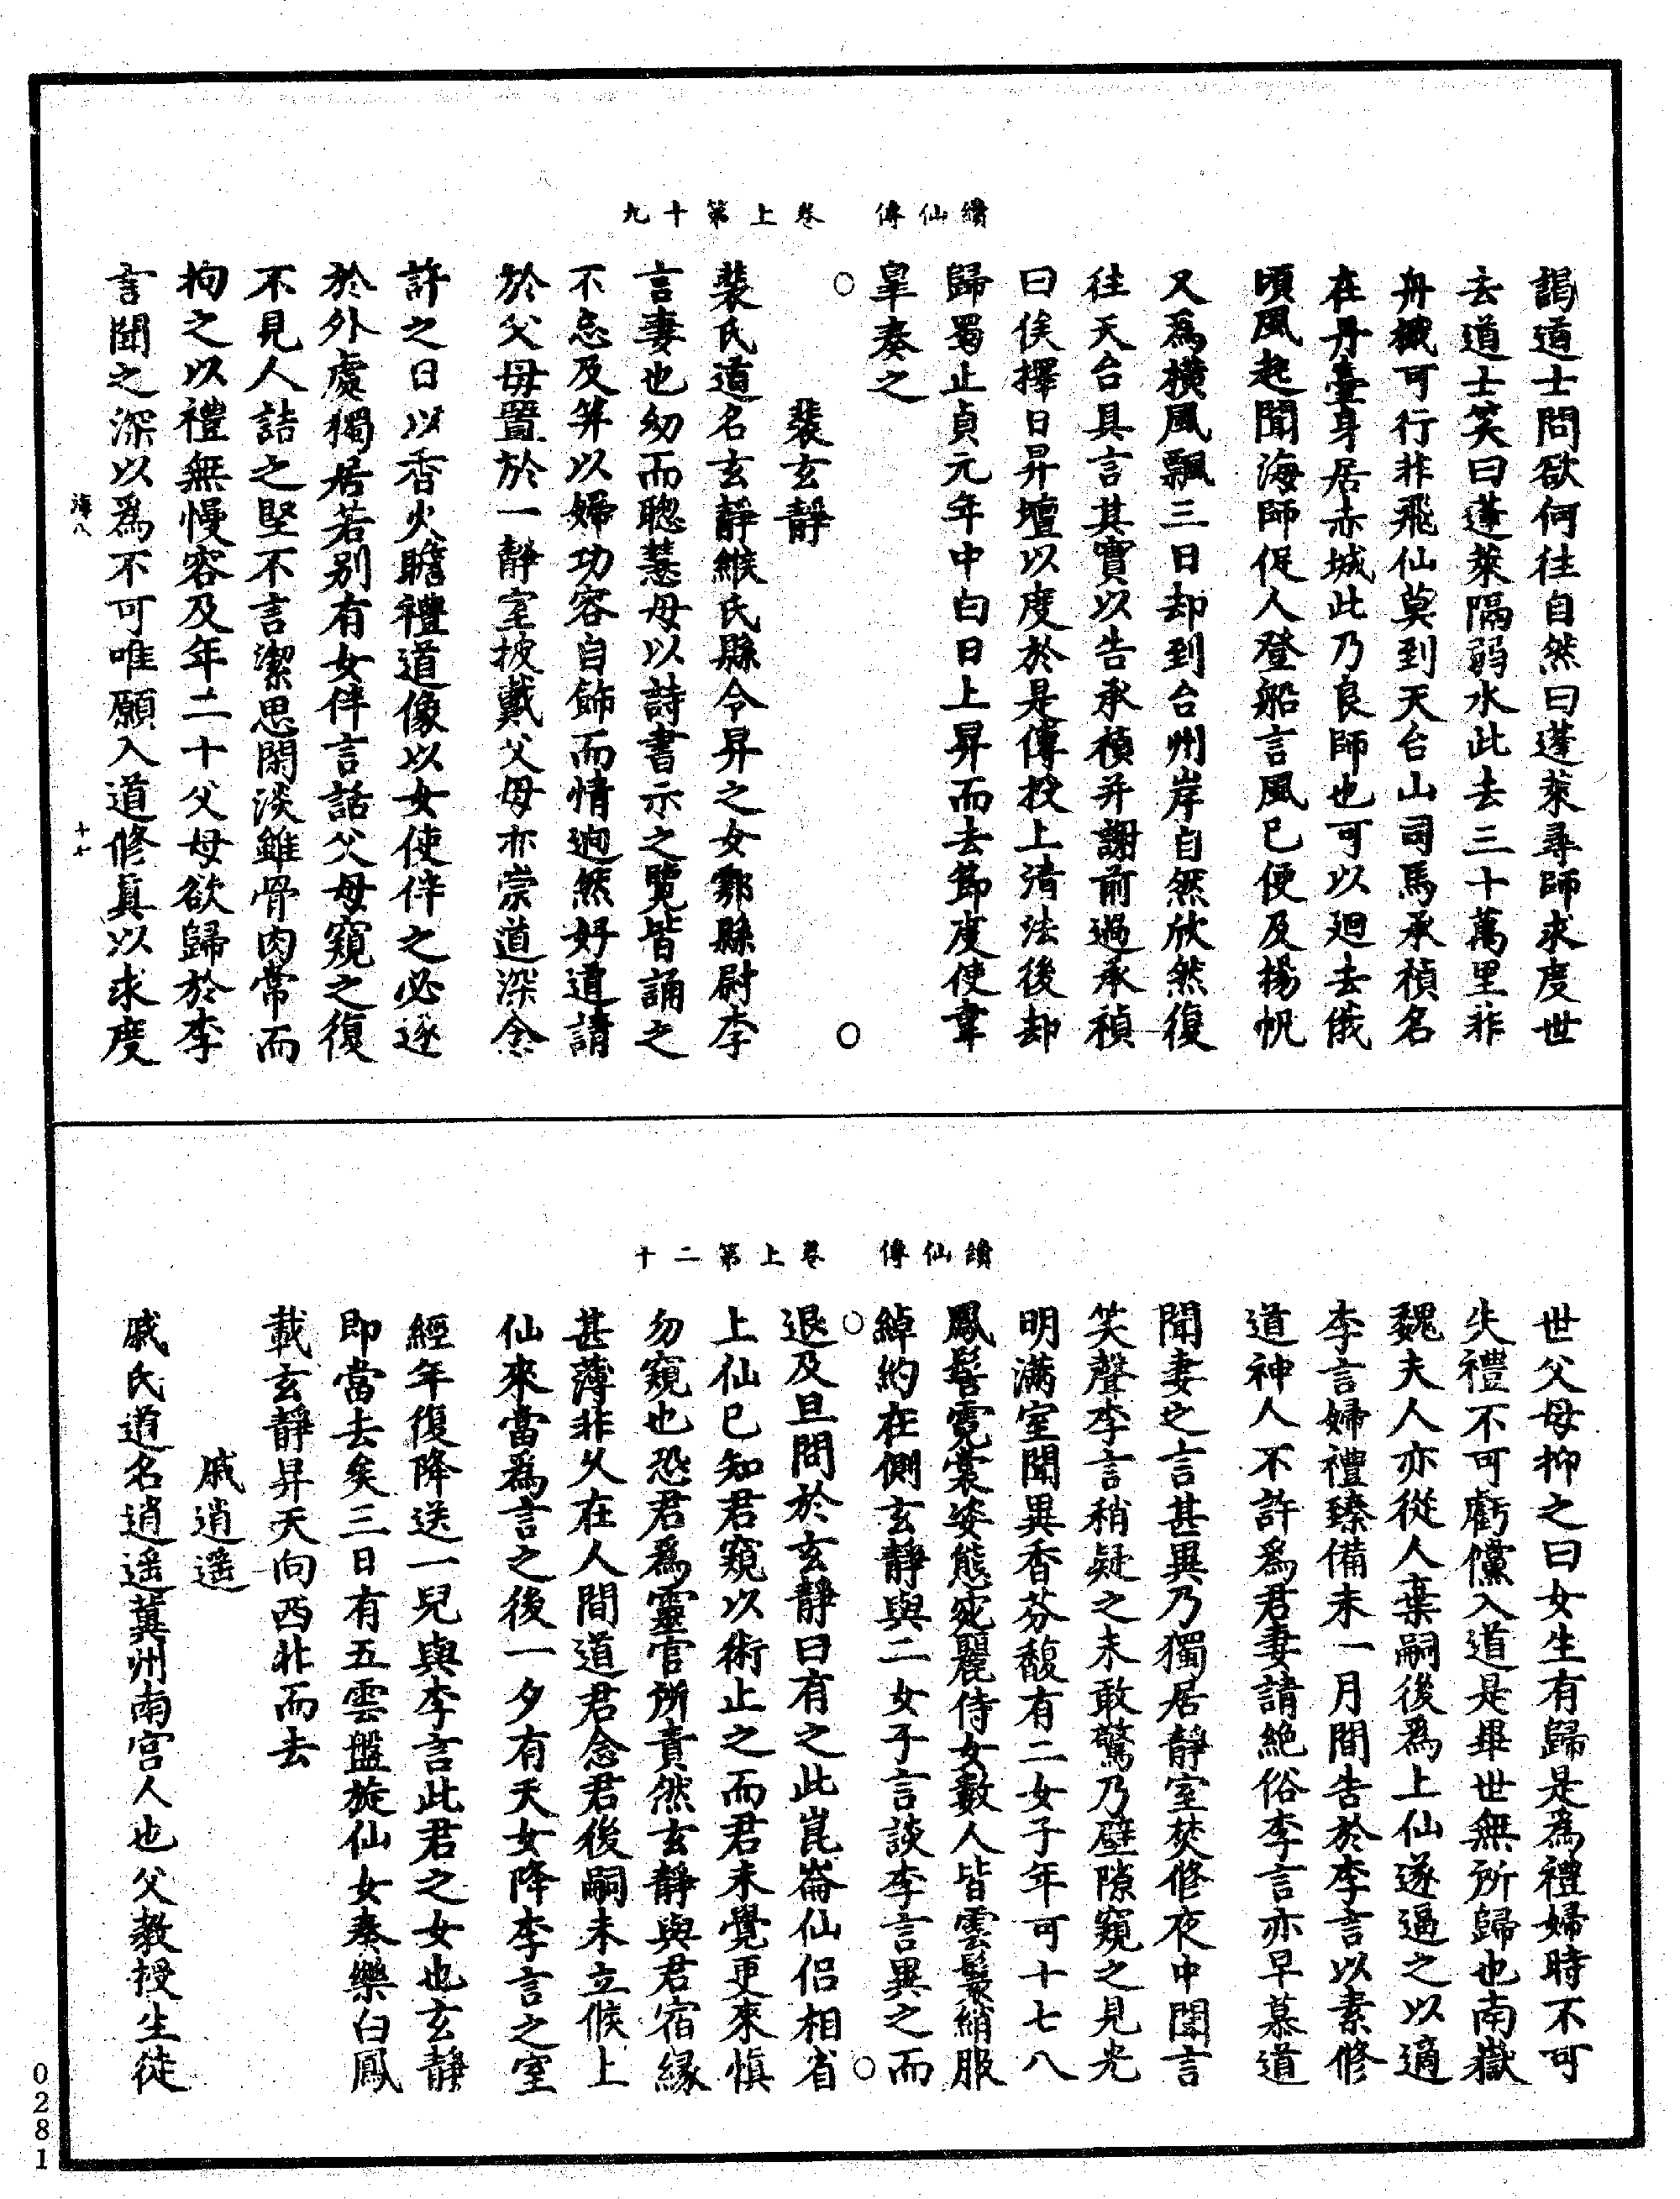 續仙傳　卷上第十九
謁道士問欲何往自然曰蓬萊尋師求度世
去道士笑曰蓬萊隔弱水此去三十萬里非
舟檝可行非飛仙莫到天台山司馬承禎名
在丹臺身居赤城此乃良師也可以廻去俄
頃風起聞海師促人登船言風已便及揚帆
又爲橫風飄三日却到台州岸自然欣然復
往天台具言其實以告承禎并謝前過承禎
曰俟擇日昇壇以度於是傳授上清法後却
歸蜀止貞元年中白日上昇而去節度使韋
皐奏之
○　裴玄靜　○
裴氏道名玄靜緱氏縣令昇之女鄠縣尉李
言妻也幼而聰慧母以詩書示之覽皆誦之
不忘及笄以婦功容自飾而情迥然好道請
於父母置於一靜室披戴父母亦崇道深念
許之日以香火瞻禮道像以女使伴之必逐
於外處獨居若别有女伴言話父母窺之復
不見人詰之堅不言潔思閑淡雖骨肉常而
拘之以禮無慢容及年二十父母欲歸於李
言聞之深以爲不可唯願入道修真以求度
海八　十七
續仙傳　卷上第二十
世父母抑之曰女生有歸是爲禮婦時不可
失禮不可虧儻入道是畢世無所歸也南嶽
魏夫人亦從人棄嗣後爲上仙遂逼之以適
李言婦禮臻備未一月間告於李言以素修
道神人不許爲君妻請絶俗李言亦早慕道
聞妻之言甚異乃獨居靜室焚修夜中聞言
笑聲李言稍疑之未敢驚乃壁隙窺之見光
明滿室聞異香芬馥有二女子年可十七八
鳳髻霓裳姿態宛麗侍女數人皆雲鬟綃服
綽約在側玄靜與二女子言談李言異之而
○　○
退及旦問於玄靜曰有之此崑崙仙侣相省
上仙已知君窺以術止之而君未覺更來慎
勿窺也恐君爲靈官所責然玄靜與君宿緣
甚薄非久在人間道君念君後嗣未立候上
仙來當爲言之後一夕有天女降李言之室
經年復降送一兒與李言此君之女也玄靜
即當去矣三日有五雲盤旋仙女奏樂白鳳
載玄靜昇天向西北而去
戚逍遥
戚氏道名逍遥冀州南宫人也父教授生徒
0281